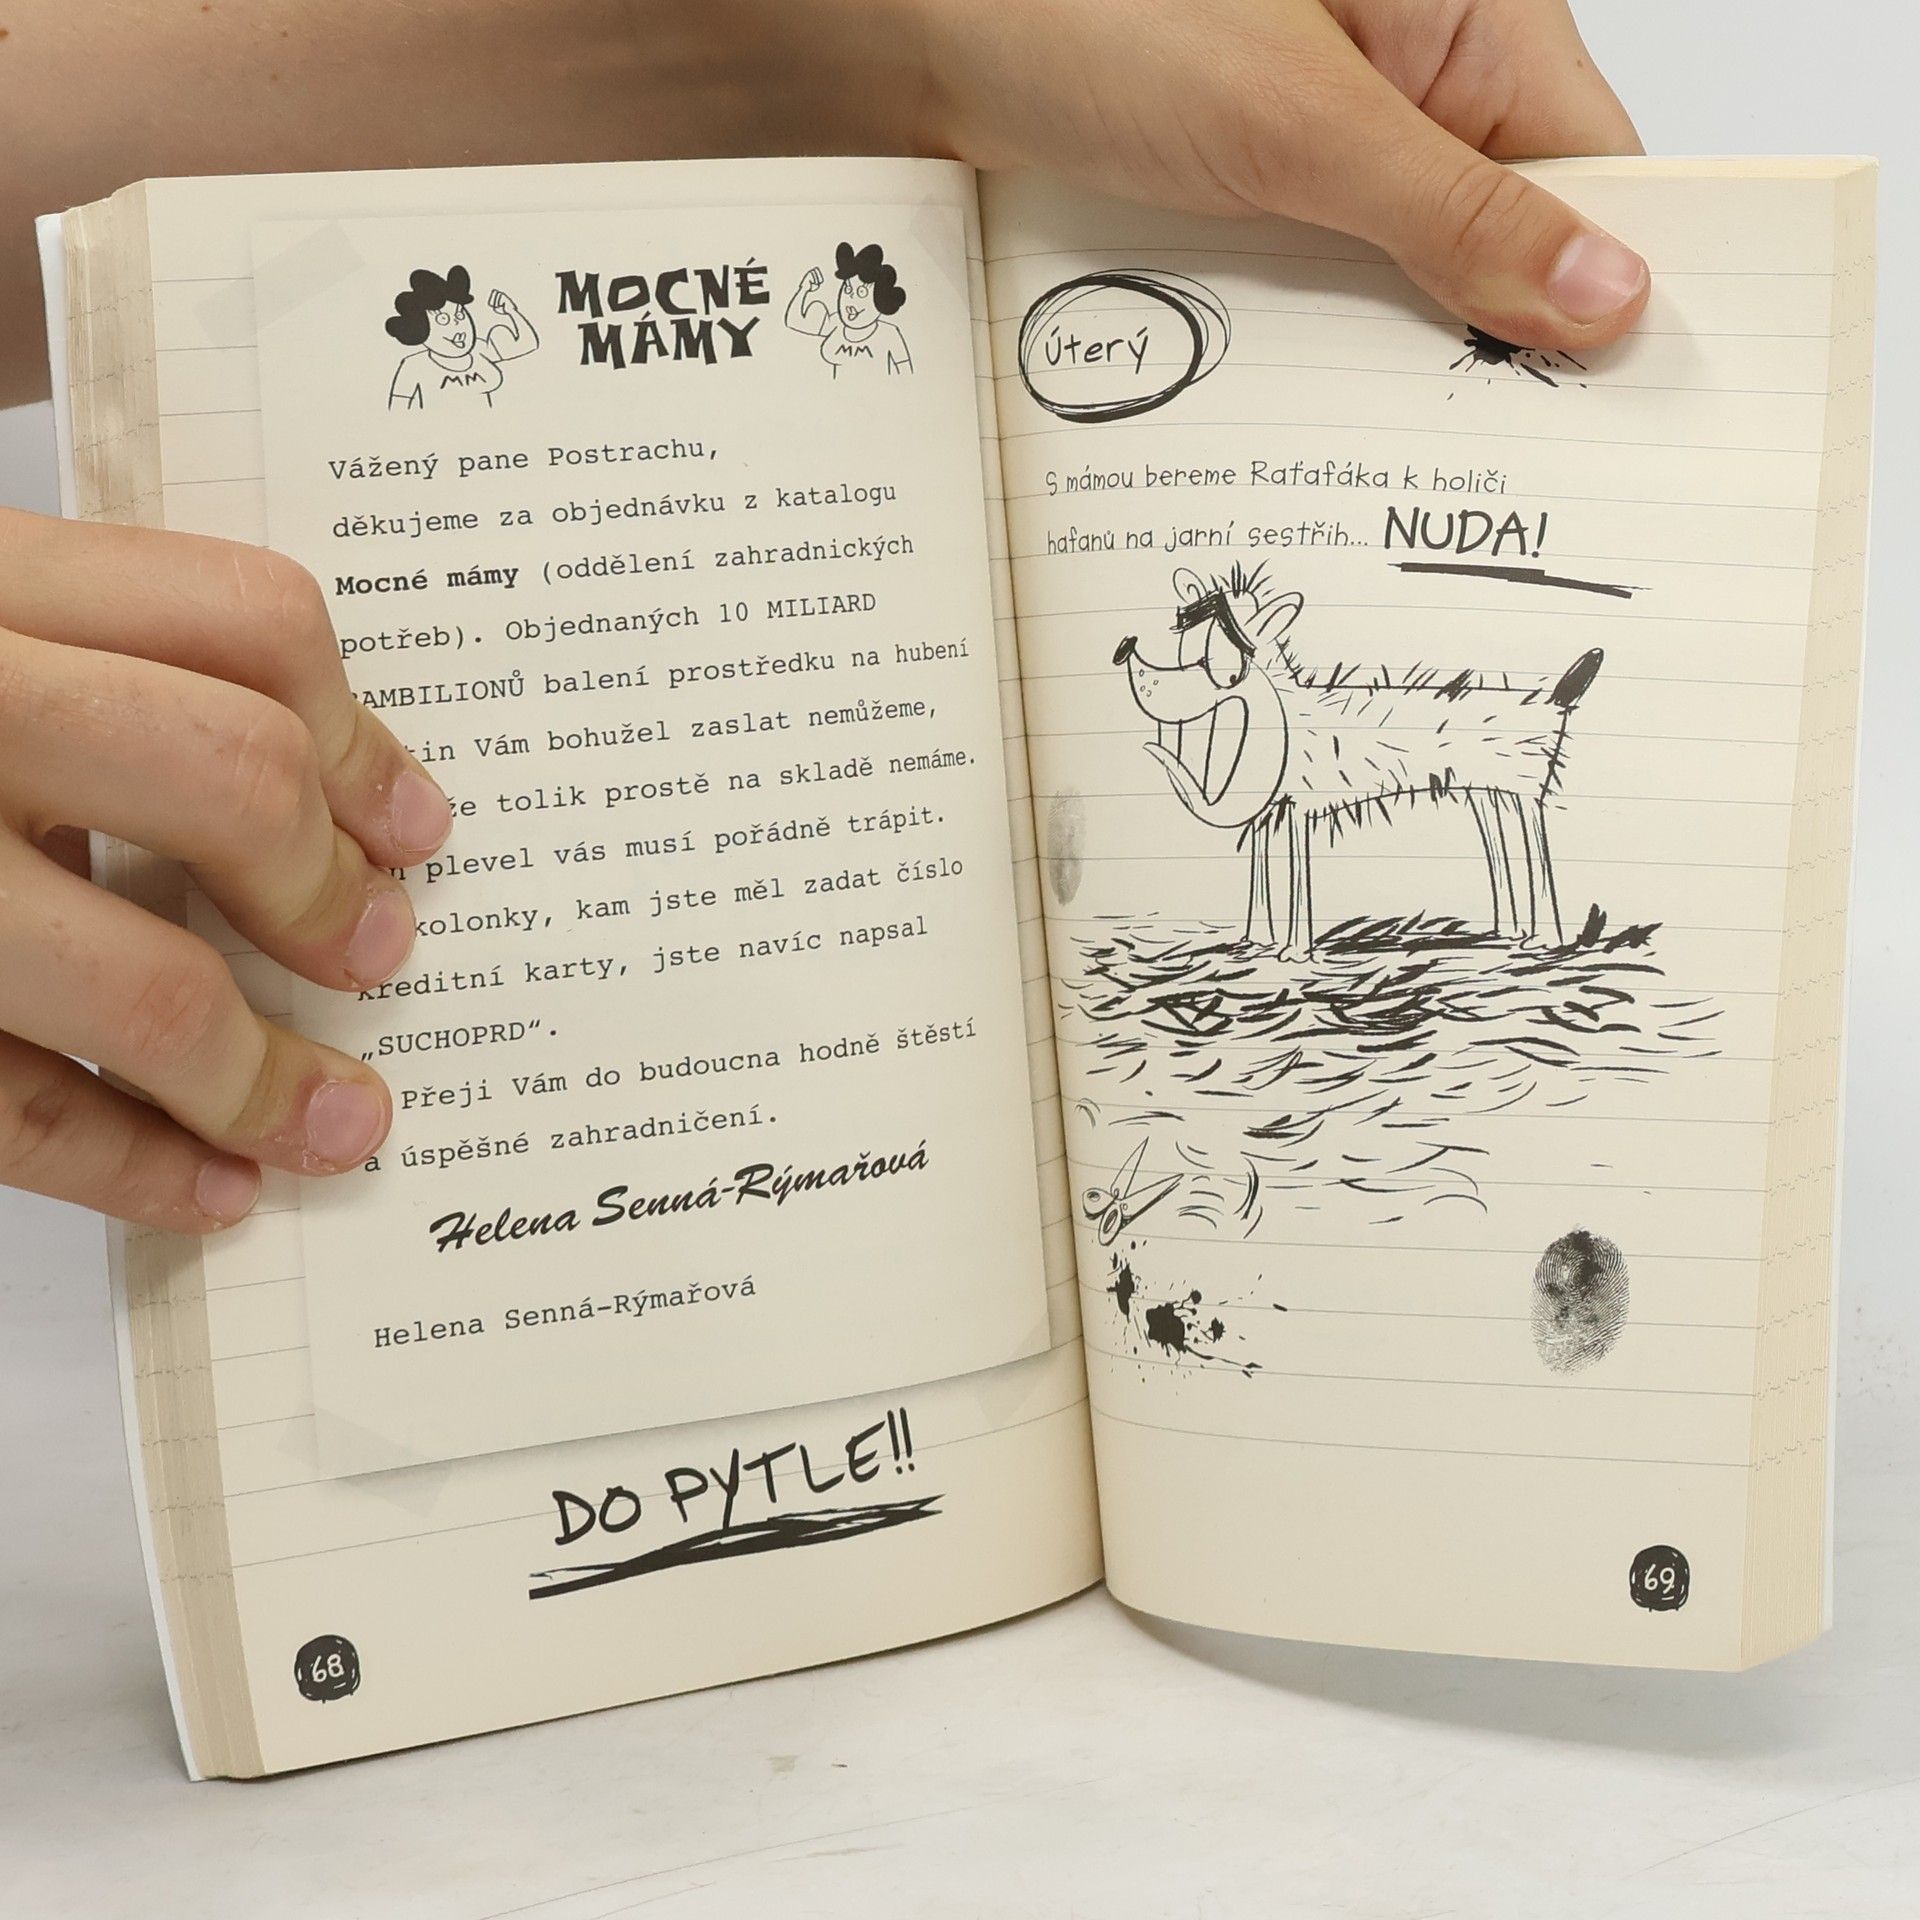 MOCNÉ
MÁMY
MM
MM
Vážený pane Postrachu,
děkujeme za objednávku z katalogu
Mocné mámy (oddělení zahradnických
potřeb). Objednaných 10 MILIARD
AMBILIONŮ balení prostředku na hubení
tin Vám bohužel zaslat nemůžeme,
že tolik prostě na skladě nemáme.
plevel vás musí pořádně trápit.
kolonky, kam jste měl zadat číslo
kreditní karty, jste navíc napsal
„SUCHOPRD“.
Přeji Vám do budoucna hodně štěstí
a úspěšné zahradničení.
Helena Senná-Rýmařová
Helena Senná-Rýmařová
DO PYTLE!!
68
Úterý
S mámou bereme Raťafáka k holiči
hafanů na jarní sestřih... NUDA!
69